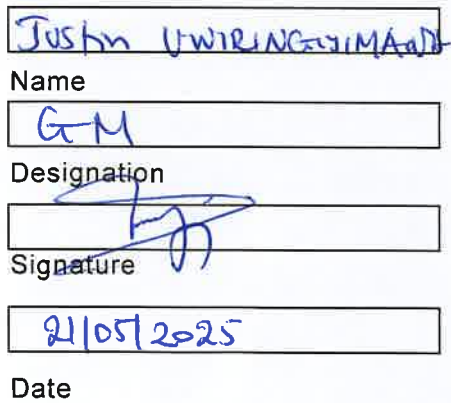 Justin UWIRINGIYIMANA
Name
GM
Designation
Signature
21/05/2025
Date